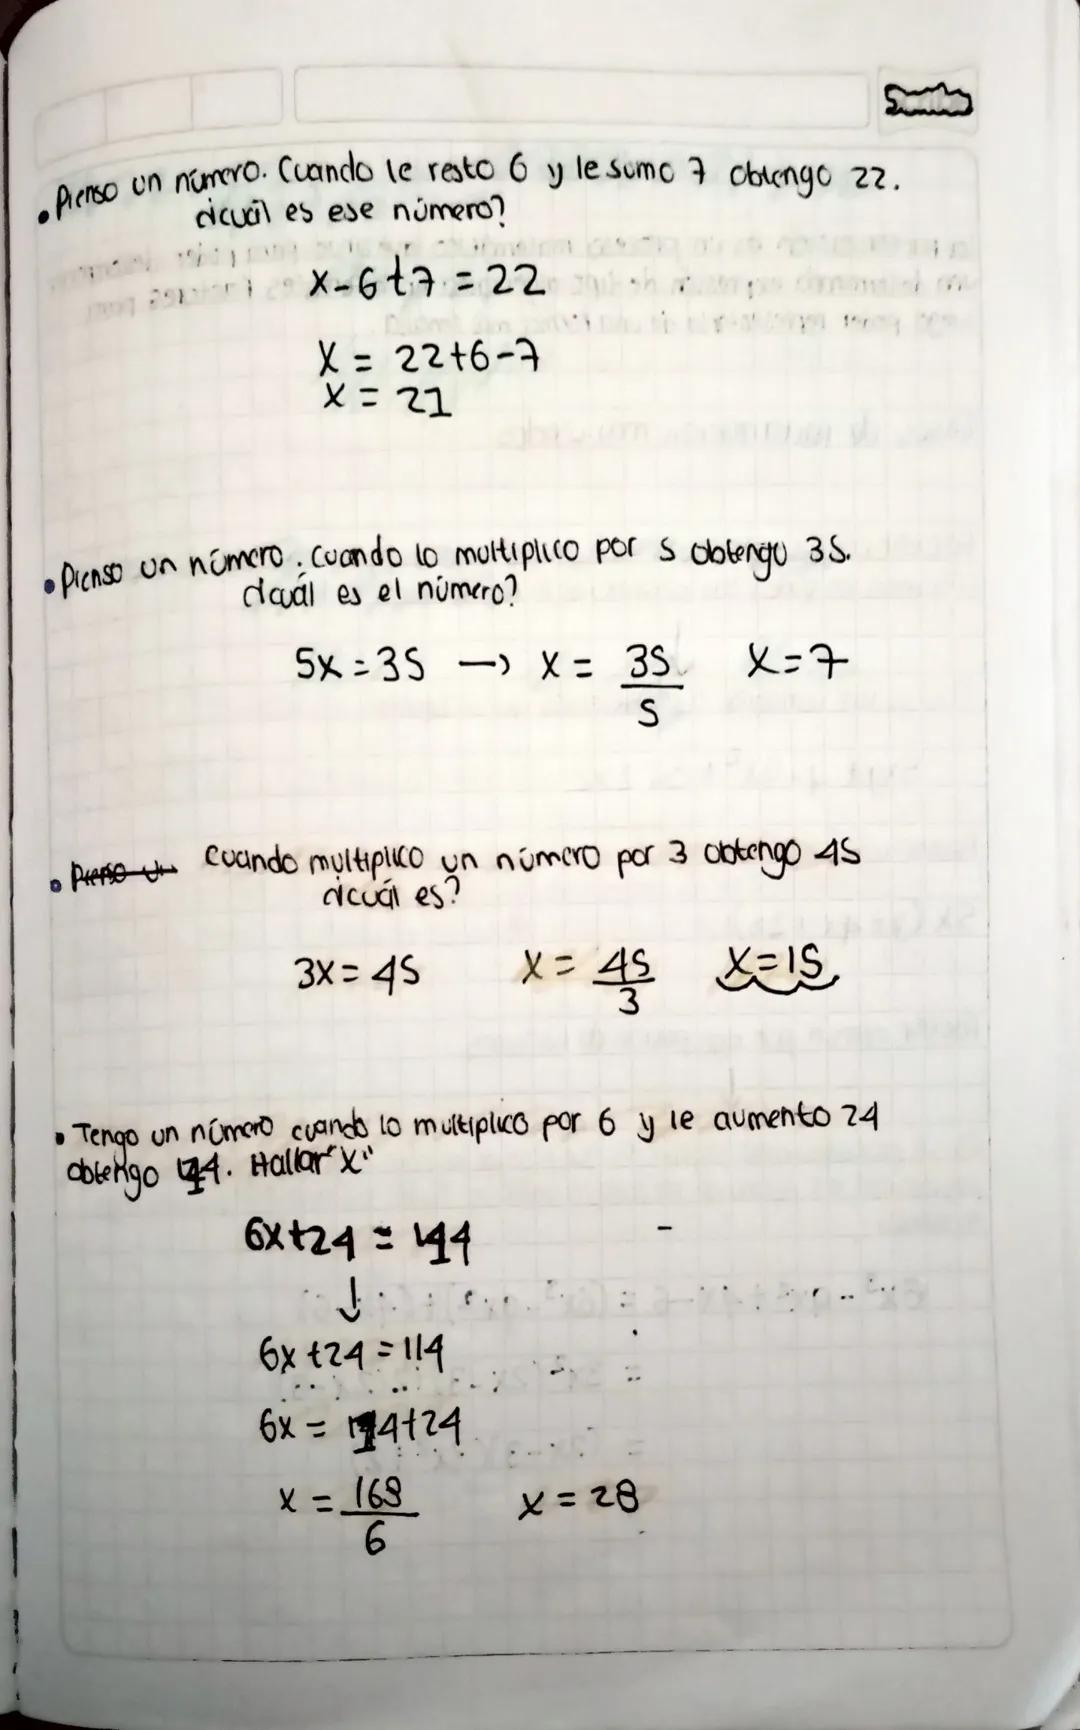 • Pienso un número. Cuando le resto 6 y le sumo 7 obtengo 22.
¿cuál es ese número?
x-6+7=22
X = 22+6-7
X = 21
• Pienso un número. Cuando lo multiplico por 5 obtengo 35.
¿cuál es el número?
5x=35 → x = 35/5 X=7
• Pienso un Cuando multiplico un número por 3 obtengo 45
¿cuál es?
3x=45 X = 45/3 X=15
• Tengo un número cuando lo multiplico por 6 y le aumento 24
obtengo 144. Hallar "X"
6x+24 = 144
↓
6x+24=114
6x = 144+24
x = 168/6 x=28